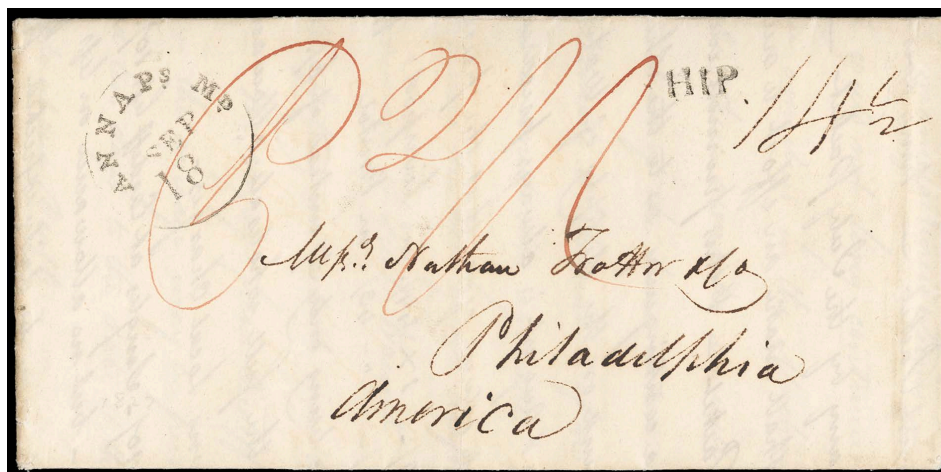 ANNAPS MD
SEP
18
HIP
14 1/2
Messrs Nathan Trotter & Co
Philadelphia
America